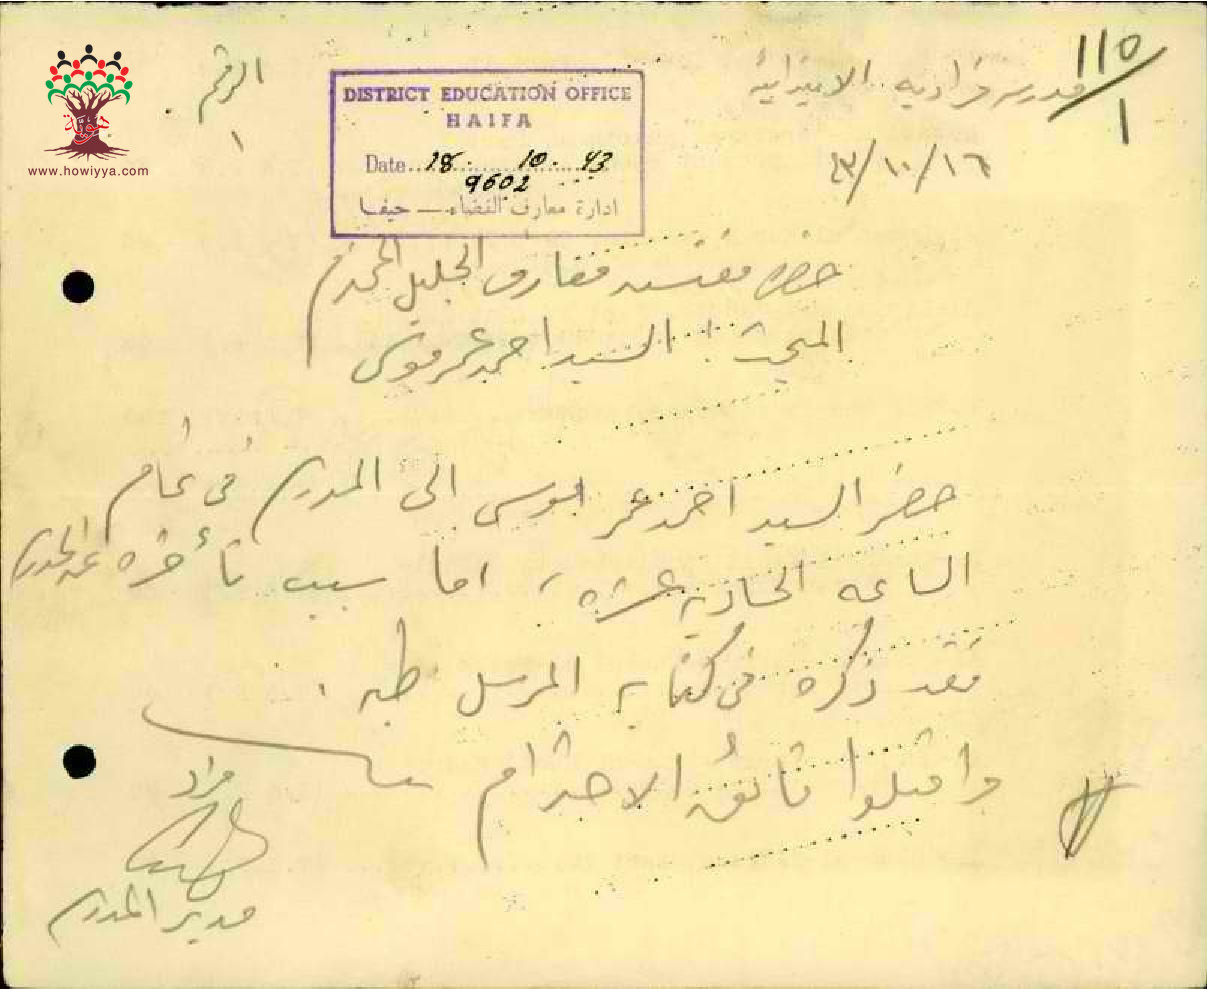 ١١٥/١
مدرسة فرادية الابتدائية
الرقم
١
٤٣/١٠/١٦
DISTRICT EDUCATION OFFICE
HAIFA
Date 18. 10. 43
9602
ادارة معارف القضاء — حيفا
هوية
www.howiyya.com
حضرة مفتش معارف الجليل المحترم
المبحث : السيد احمد عمر موسى
حضر السيد احمد عمر موسى الى المدرسة في تمام
الساعه الحادية عشره ، اما سبب تأخره عن المدرسة
فقد ذكره في كتابه المرسل طيه .
واقبلوا فائق الاحترام
مدير المدرسة